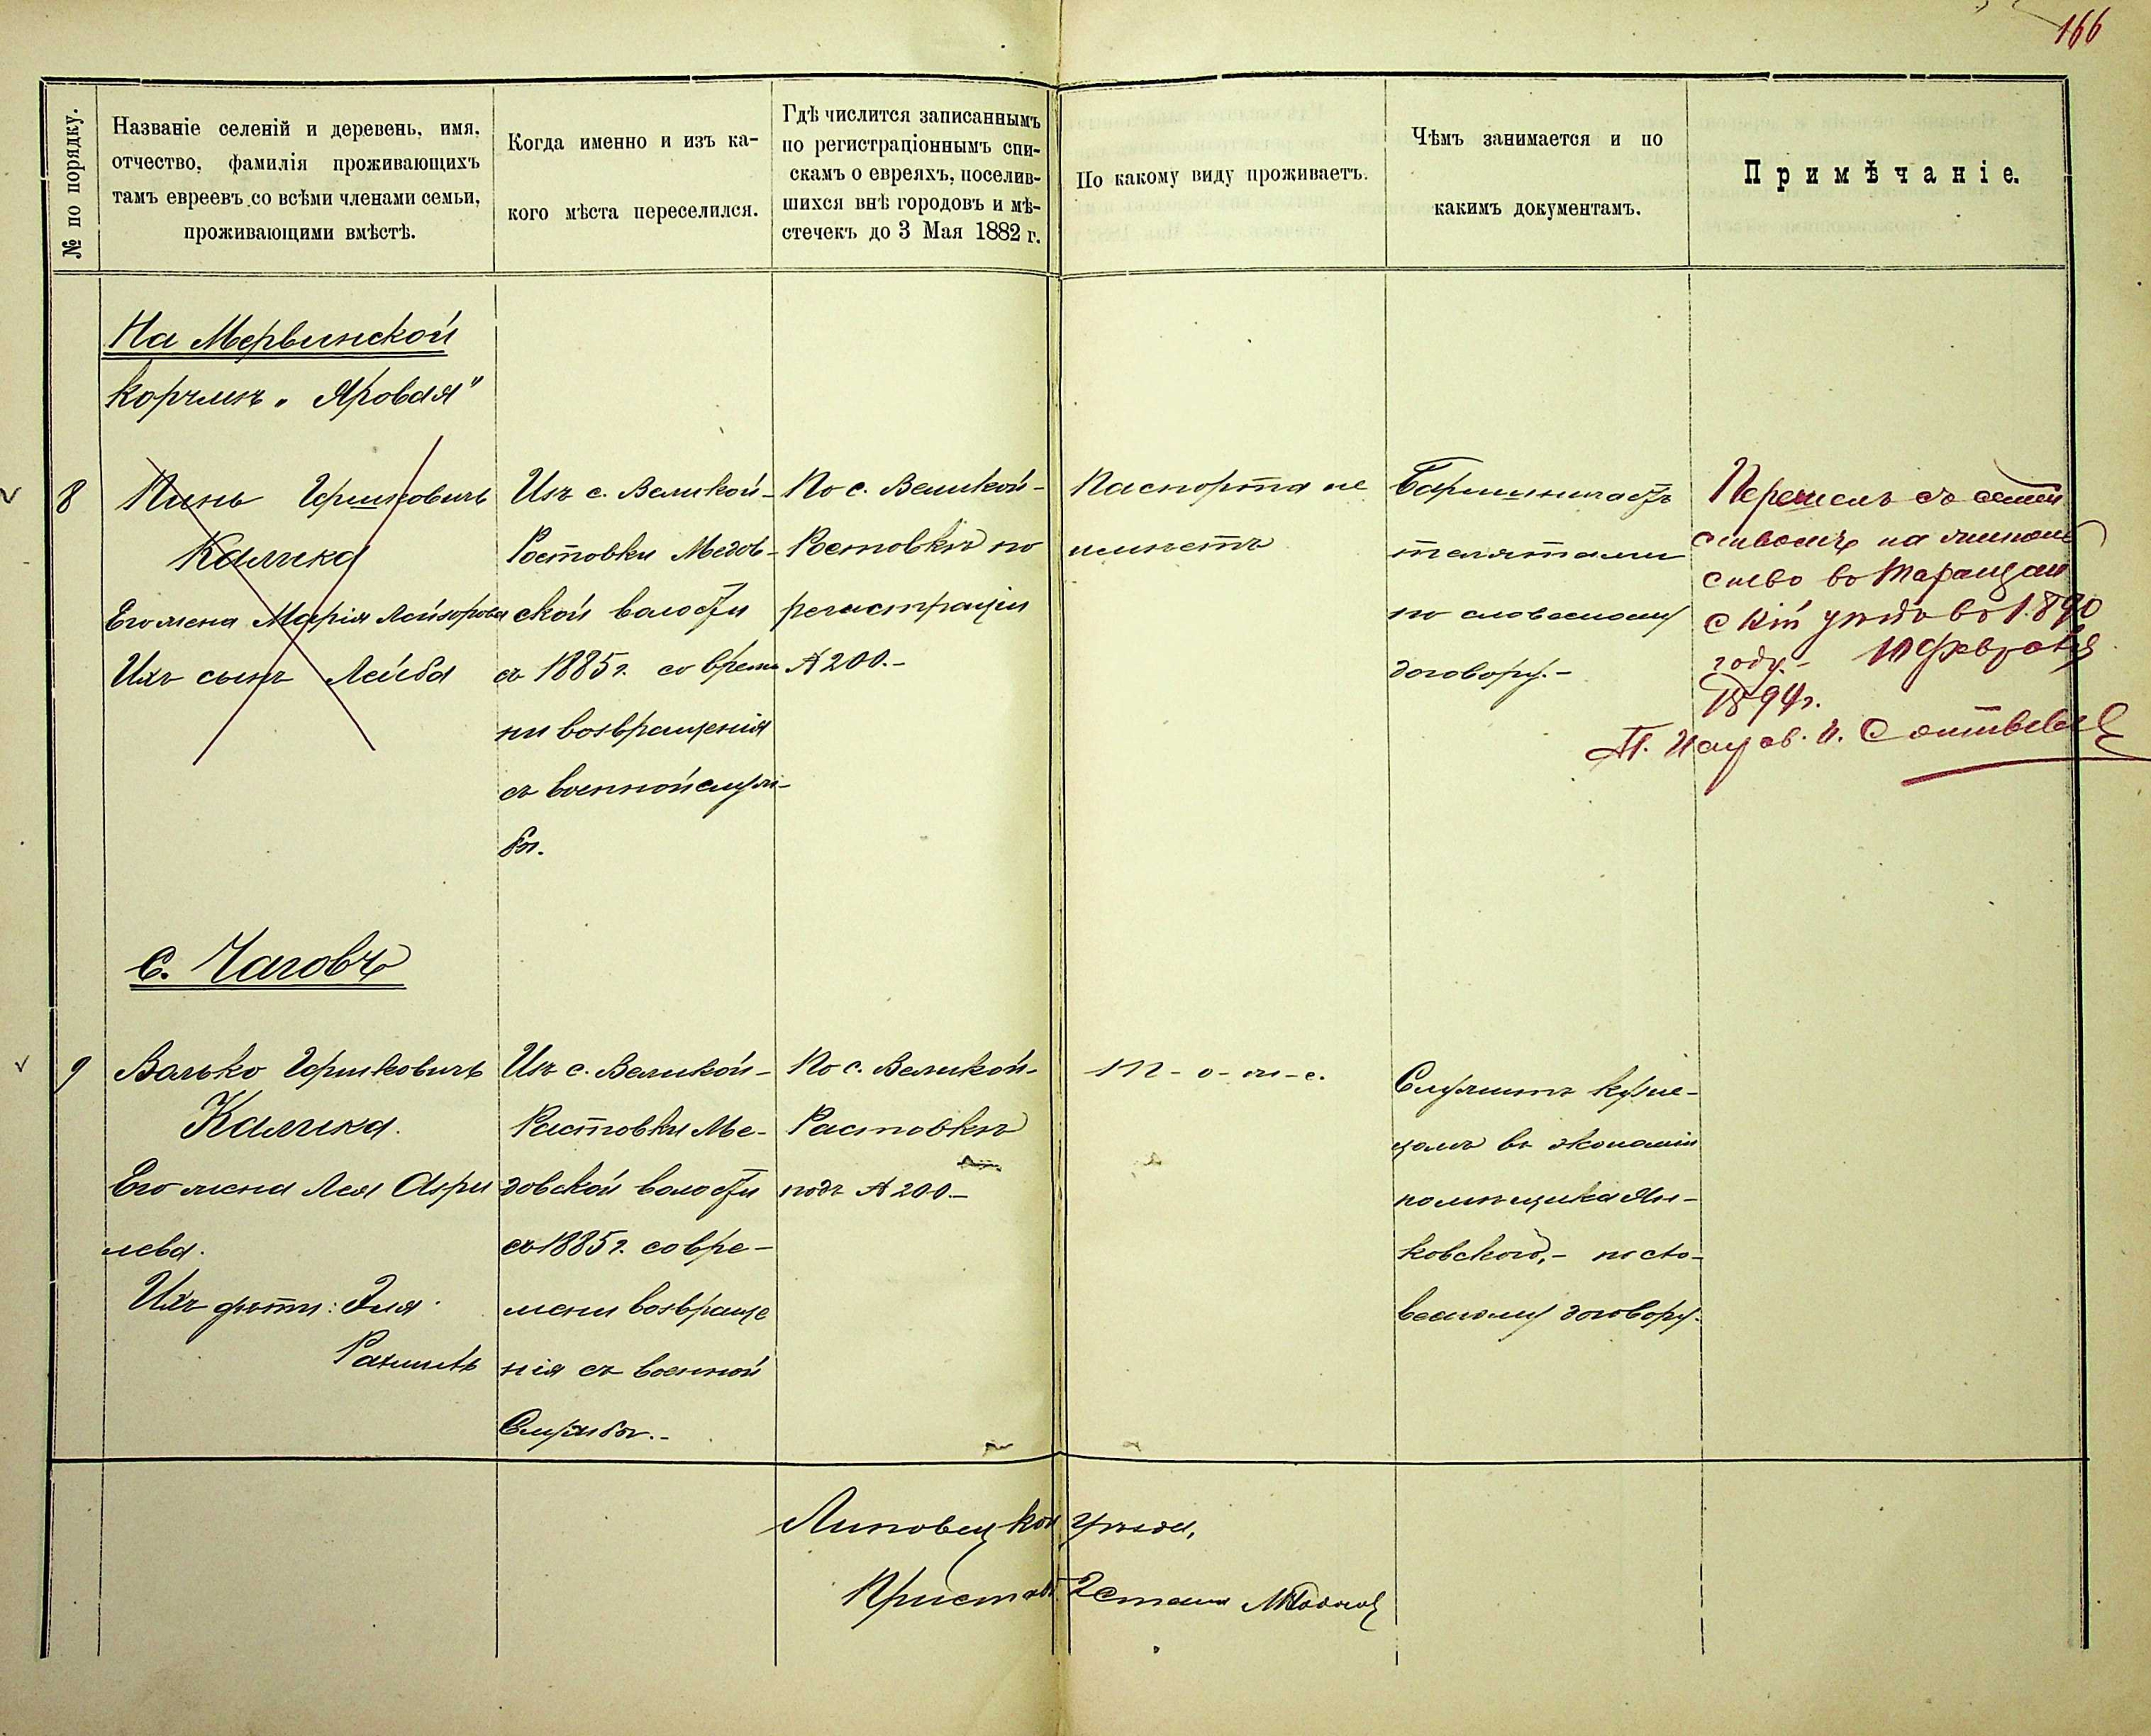 166
№ по порядку.
Названіе селеній и деревень, имя,
отчество, фамилія проживающихъ
тамъ евреевъ со всѣми членами семьи,
проживающими вмѣстѣ.
Когда именно и изъ ка-
кого мѣста переселился.
Гдѣ числится записаннымъ
по регистраціоннымъ спи-
скамъ о евреяхъ, поселив-
шихся внѣ городовъ и мѣ-
стечекъ до 3 Мая 1882 г.
По какому виду проживаетъ.
Чѣмъ занимается и по
какимъ документамъ.
Примѣчаніе.
На Мервинской
корчмѣ „Яровая"
8
Пинь Гершковичъ
Калика
Его жена Марія Лейзорова
Ихъ сынъ Лейба
Изъ с. Великой-
Ростовки Медов-
ской волости
съ 1885 г. со време
ни возвращенія
съ военной служ-
бы.
По с. Великой-
Ростовкѣ по
регистраціи
№ 200.-
Паспорта не
имѣетъ
Барышничаетъ
телятами
по словесному
договору.-
Перешелъ съ семей
ствомъ на
ство во Таращан
скій уѣздъ въ 1890
году.- 10 февраля
1894 г.
с. Чаговъ
9
Волько Гершковичъ
Калика.
Его жена Лея Азри
лева.
Ихъ дѣти: Эля
Рахиль
Изъ с. Великой-
Растовки Ме-
довской волости
съ 1885 г. со вре-
мени возвраще
нія съ военной
службы.-
По с. Великой-
Растовкѣ
подъ № 200-
т-о-ж-е.
Служитъ кузне-
цомъ въ экономіи
помѣщика Ян-
ковскаго,- по сло-
весному договору.
Липовецкаго уѣзда,
Приставъ 2 стана